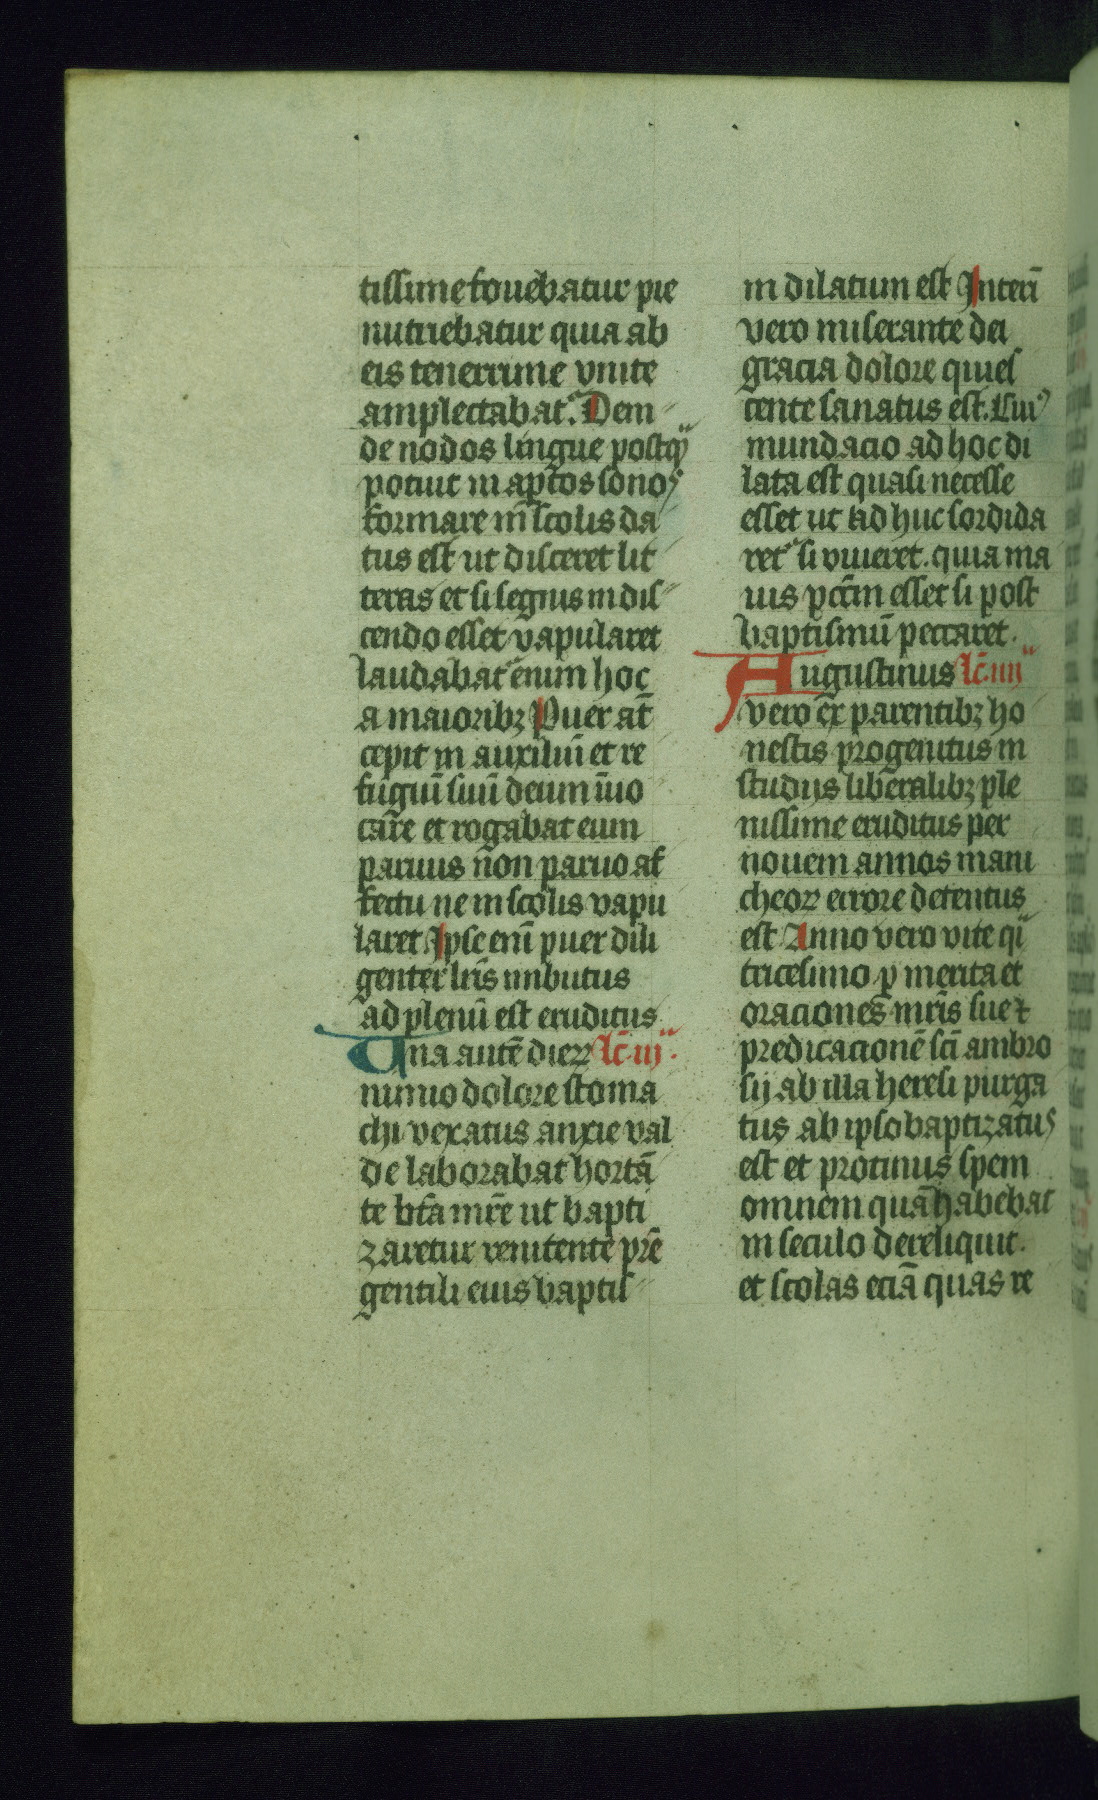 tissime fouebatur pie
nutriebatur quia ab
eis tenerrime vnite
amplectabat᷑. Dein
de nodos lingue postq̄
potuit in aptos sonos
formare in scolis da
tus est ut disceret lit
teras et si segnius in dis
cendo esset vapularet
laudabat᷑ enim hoc
a maioribꝫ Puer aūt
cepit in auxiliū et re
fugiū suū deum īuo
care et rogabat eum
paruus non paruo af
fectu ne in scolis vapu
laret Ipse enī puer dili
genter lr̄is imbutus
ad plenū est eruditus
Una autē dieꝝ Lc̄ iij
nimio dolore stoma
chi vexatus anxie val
de laborabat hortā
te bt̄a mr̄e ut bapti
zaretur renitente pr̄e
gentili eius baptis
m dilatum est Interī
vero miserante dei
gracia dolore quies
cente sanatus est. Cuiꝰ
mundacio ad hoc di
lata est quasi necesse
esset ut ad huc sordida
ret᷑ si viueret. quia ma
ius pctm̄ esset si post
baptismū peccaret.
Augustinus Lc̄. iiij
vero ex parentibꝫ ho
nestis progenitus in
studijs liberalibꝫ ple
nissime eruditus per
nouem annos mani
cheoꝝ errore detentus
est Anno vero vite qͥ
tricesimo ꝑ merita et
oraciones mr̄is sue ⁊
predicacionē sc̄i ambro
sij ab illa heresi purga
tus ab ipso baptizatus
est et protinus spem
omnem quā habebat
in seculo dereliquit.
et scolas eciā quas re